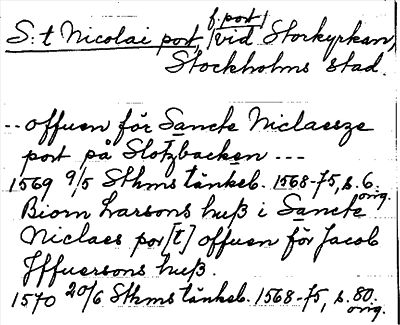 S:t Nicolai port, f. port / vid Storkyrkan,
Stockholms stad.
-- offuen för Sancte Niclaesze
port på Slotzbacken ---
1569 9/5 Sthms tänkeb. 1568-75, s. 6. orig.
Biorn Larsons huß i Sancte
Niclaes por[t] offuen för Jacob
Iffuersons huß.
1570 20/6 Sthms tänkeb. 1568-75, s. 80. orig.